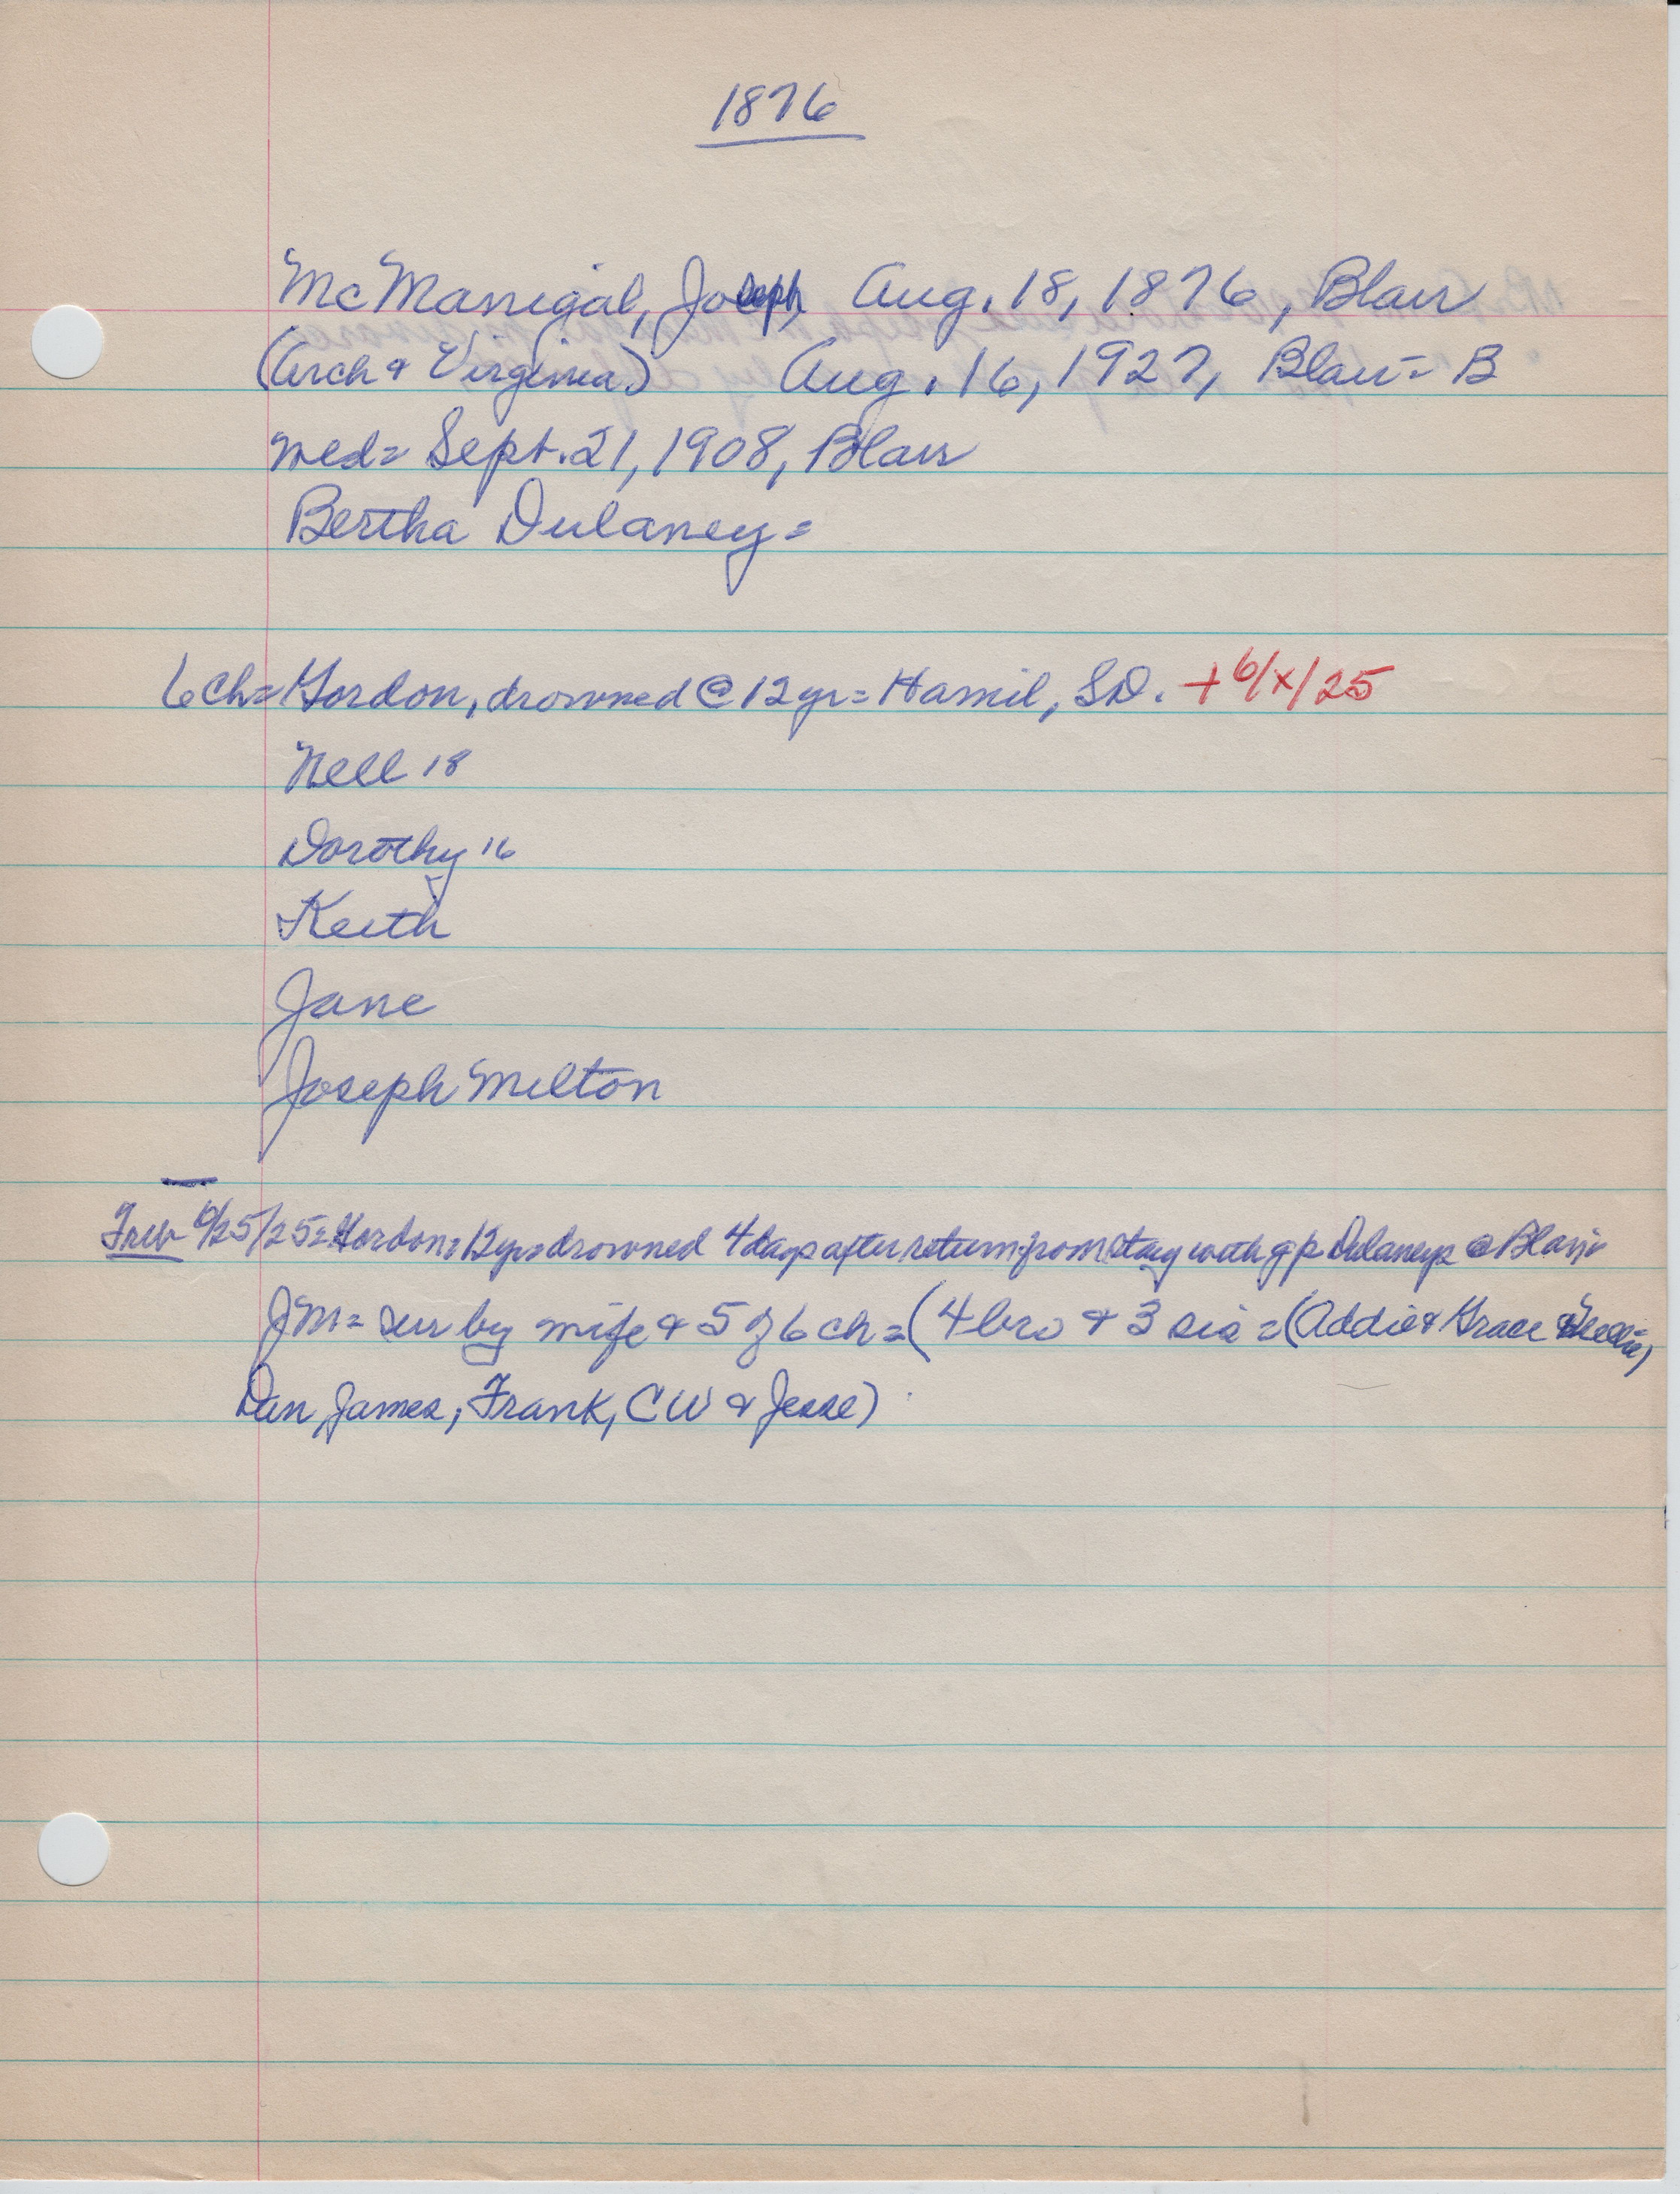 1876
McManigal, Joseph, Aug. 18, 1876, Blair
(Arch & Virginia) Aug. 16, 1927, Blair = B
wed = Sept. 21, 1908, Blair
Bertha Dulaney =
6 ch = Gordon, drowned @ 12 yr = Hamil, SD. + 6/x/25
Nell 18
Dorothy 16
Keith
Jane
Joseph Milton
Trib 6/25/25 = Gordon = 12 yr = drowned 4 days after return from stay with gp Dulaneys @ Blair =
JM = sur by wife & 5 of 6 ch = (4 bro & 3 sis = (Addie & Grace & Nellie,
Dan, James, Frank, CW & Jesse)